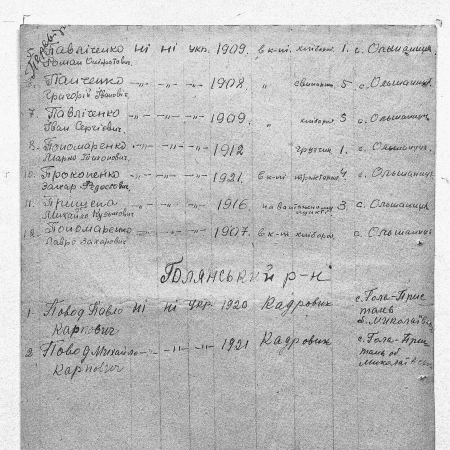 5. Павліченко ні ні укр. 1909. в к-пі хлібороб 1. с. Ольшаниця.
Роман
Панченко -"- -"- -"- 1908. " 5 с. Ольшаниця
Григорій Іванович
7. Павліченко -"- -"- -"- 1909. " хлібороб 3 с. Ольшаниця
Іван Сергієвич.
8. Пономаренко -"- -"- -"- 1912 грузчик 1. с. Ольшаниця
10. Прокопенко -"- -"- -"- 1921. в к-пі 4 с. Ольшаниця
Захар Федосович.
11. Прищепа -"- -"- -"- 1916. 3. с. Ольшаниця
Михайло Кузьмович
12. Пономаренко -"- -"- -"- 1907. в к-пі хлібороб. с. Ольшаниця
Лавро Захарович
Голянський р-н
1. Повод Павло ні ні укр. 1920 Кадровик с. Гола-Прис
Карпович тань
2. Повод Михайло -"- -"- -"- 1921 Кадровик с. Гола-Прис
Карпович тань об.